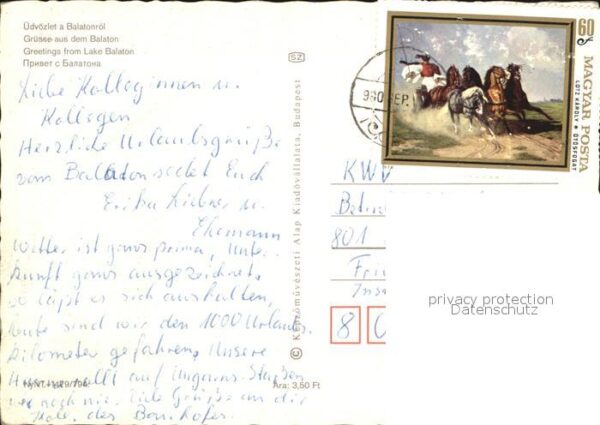 Üdvözlet a Balatonról
Grüsse aus dem Balaton
Greetings from Lake Balaton
Привет с Балатона
Liebe Kolleginnen u.
Kollegen
Herzliche Urlaubsgrüße
vom Balaton sendet Euch
Erika u.
Ehemann
Wetter ist ganz prima, Unter-
kunft ganz ausgezeichnet,
so läßt es sich aushalten,
heute sind wir den 1000 Urlaubs-
kilometer gefahren, Unsere
auf Ungarns Straßen
noch nie. Viele Grüße an die
des
Ára: 3,50 Ft
SZ
© Képzőművészeti Alap Kiadóvállalata, Budapest
60 f
MAGYAR POSTA
LOTZ KÁROLY • ÖTÖSFOGAT
980 SEP.
KWV
801
8
privacy protection
Datenschutz